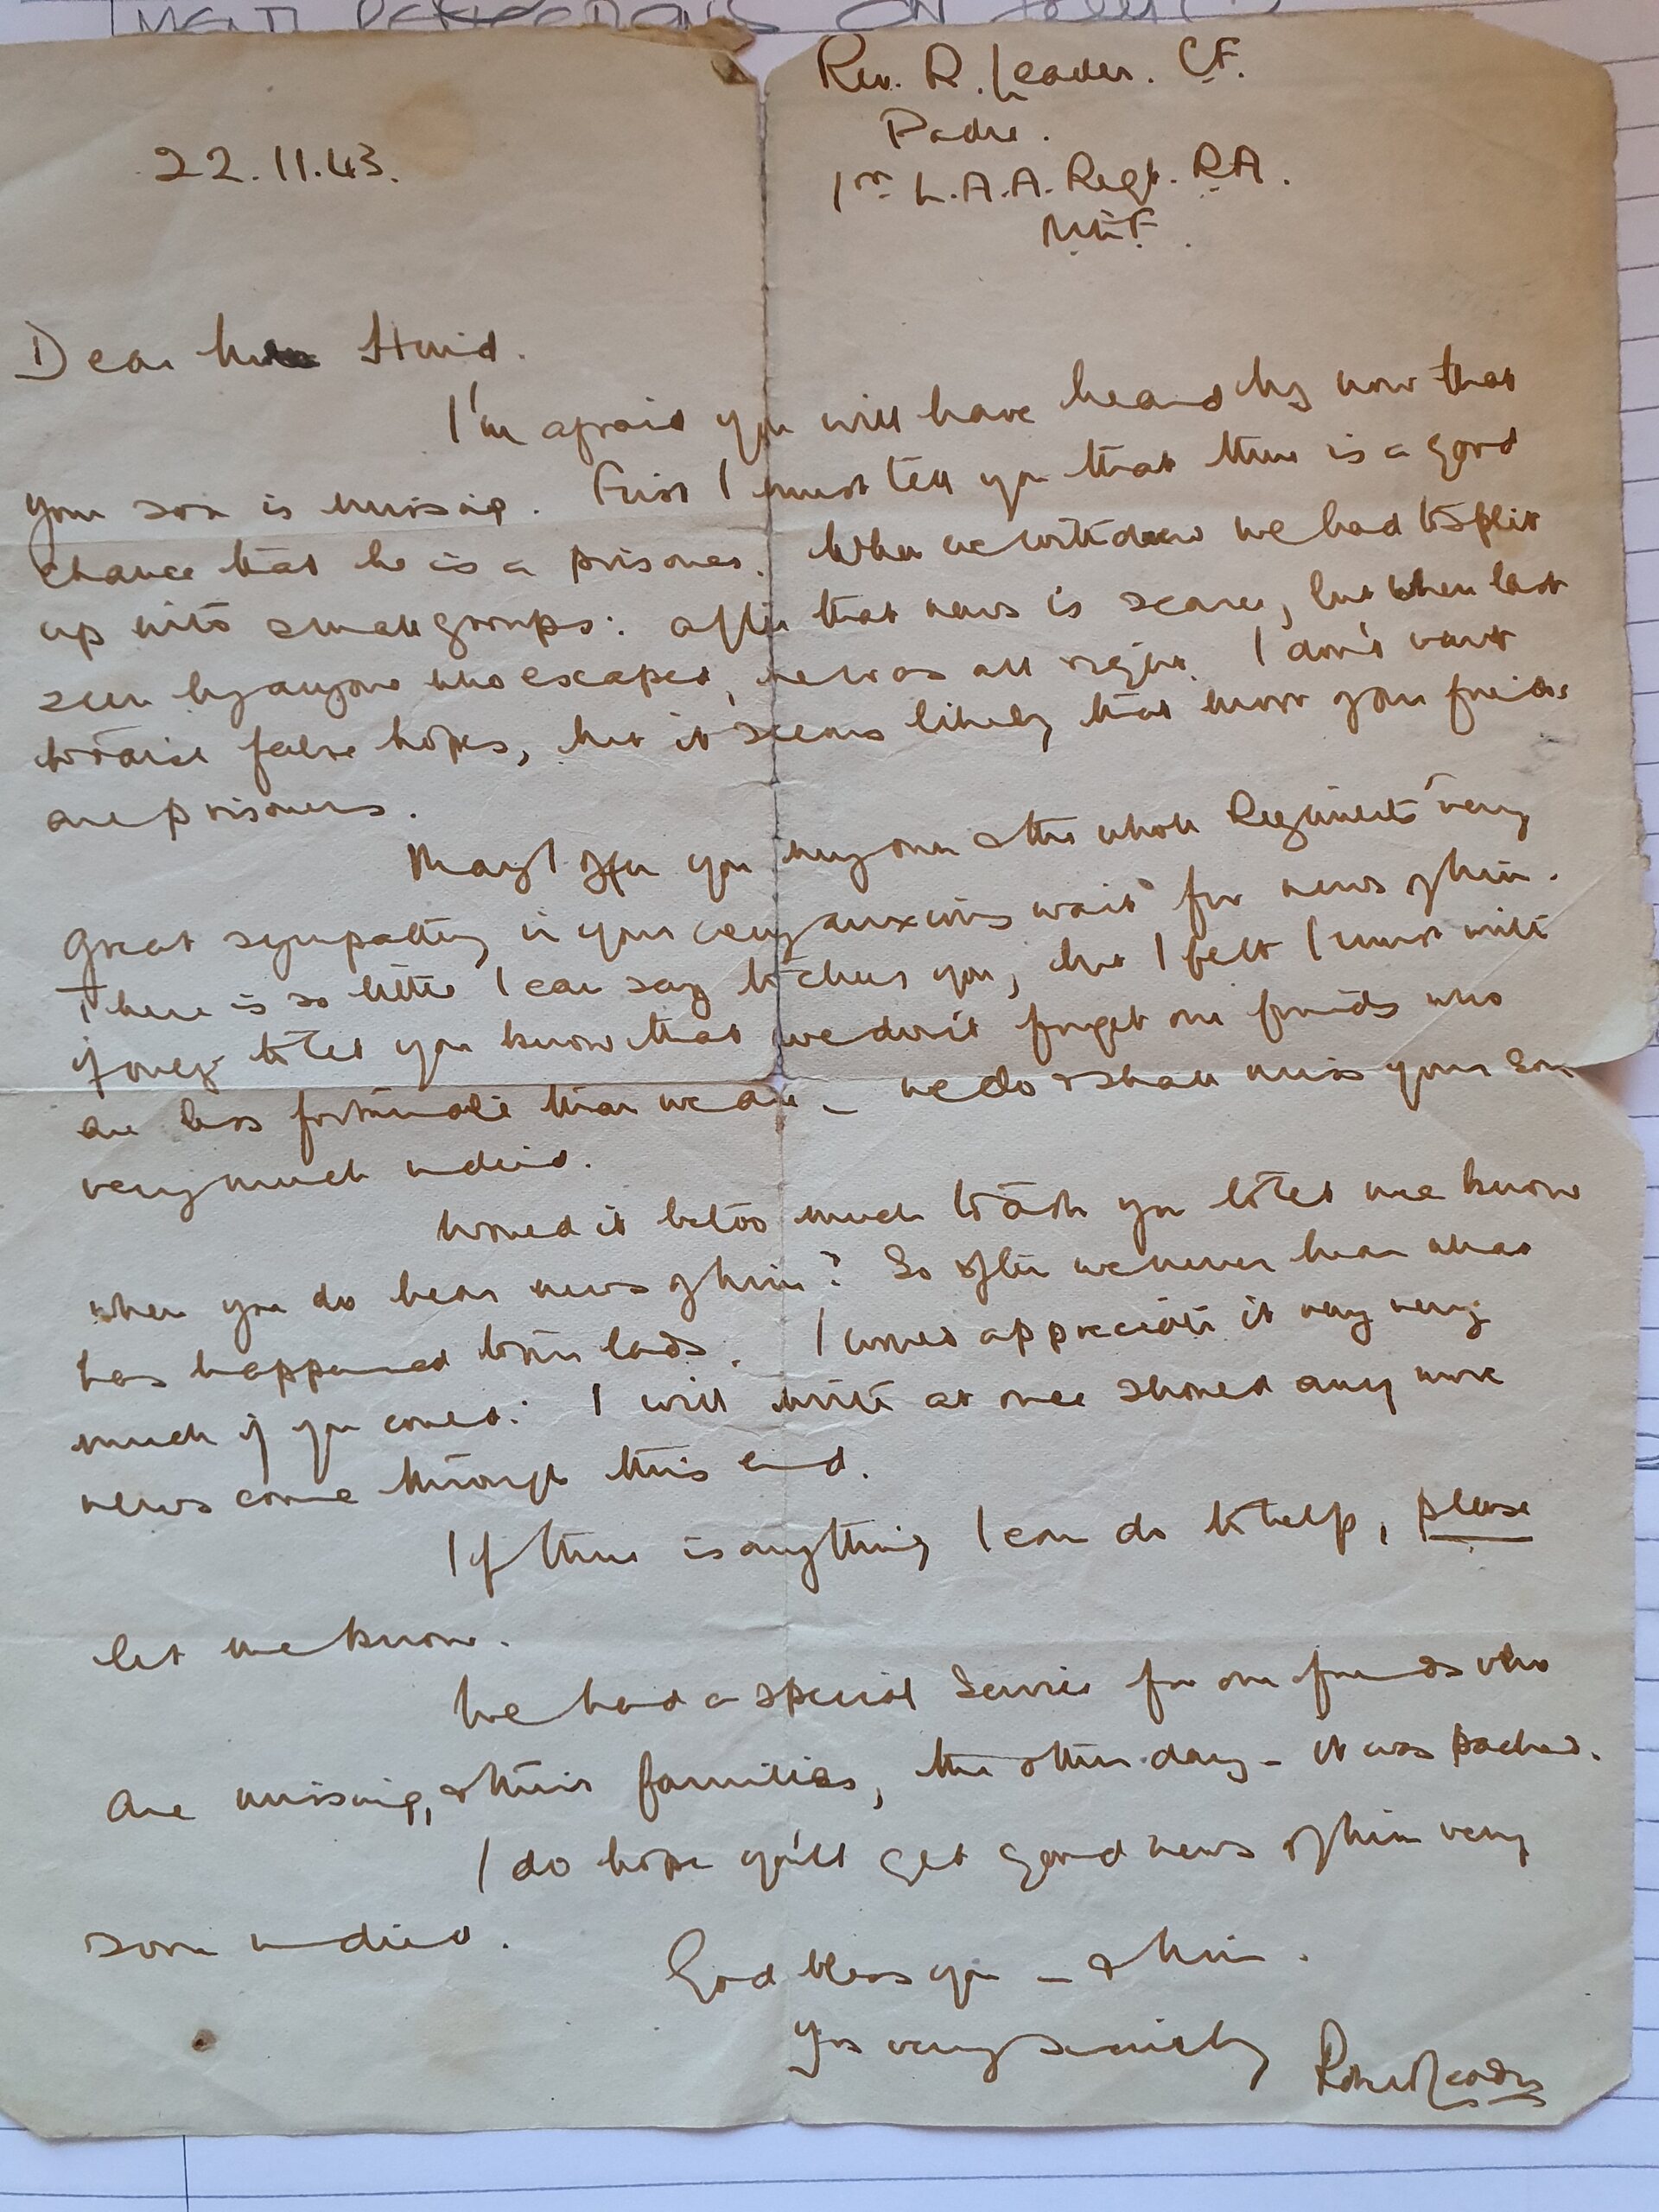 22.11.43.
Rev. R. Leader. C.F.
Padre.
1st L.A.A. Regt. R.A.
M.E.F.
Dear
I'm afraid you will have heard by now that
your son is missing. First I must tell you that there is a good
chance that he is a prisoner. When we withdrew we had to split
up into small groups: after that news is scarce, but when last
seen by anyone who escaped, he was all right. I don't want
to raise false hopes, but it seems likely that most of our friends
are prisoners.
May I offer you my own & the whole Regiment's very
great sympathy in your very anxious wait for news of him.
There is so little I can say to cheer you, but I felt I must write
if only to let you know that we don't forget our friends who
are less fortunate than we are – we do & shall miss your son
very much indeed.
Would it be too much to ask you to let me know
when you do hear news of him? So often we never hear what
has happened to our lads. I would appreciate it very very
much if you could. I will write at once should any more
news come through this end.
If there is anything I can do to help, please
let me know.
We had a special Service for our friends who
are missing, & their families, the other day – it was packed.
I do hope you'll get good news of him very
soon indeed.
God bless you – & him.
Yrs very sincerely
Robert Leader